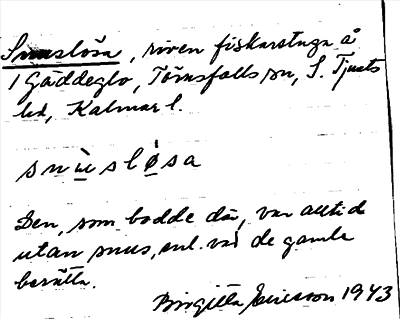 Snuslösa, riven fiskarstuga å
1 Gäddeglo, Törnsfalls sn, S. Tjusts
hd, Kalmar l.
snùslø̀sa
Den, som bodde där, var alltid
utan snus, enl. vad de gamla
berätta.
Birgitta Ericsson 1943